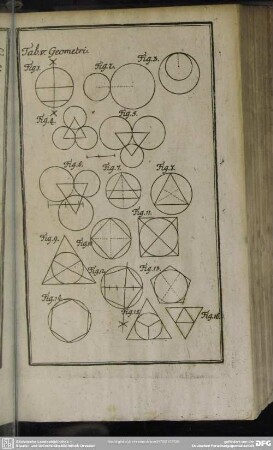 Tab. V. Geometri.
Fig. 1.
Fig. 2.
Fig. 3.
Fig. 4.
Fig. 5.
Fig. 6.
Fig. 7.
Fig. 8.
Fig. 9.
Fig. 10.
Fig. 11.
Fig. 12.
Fig. 13.
Fig. 14.
Fig. 15.
Fig. 16.
DFG